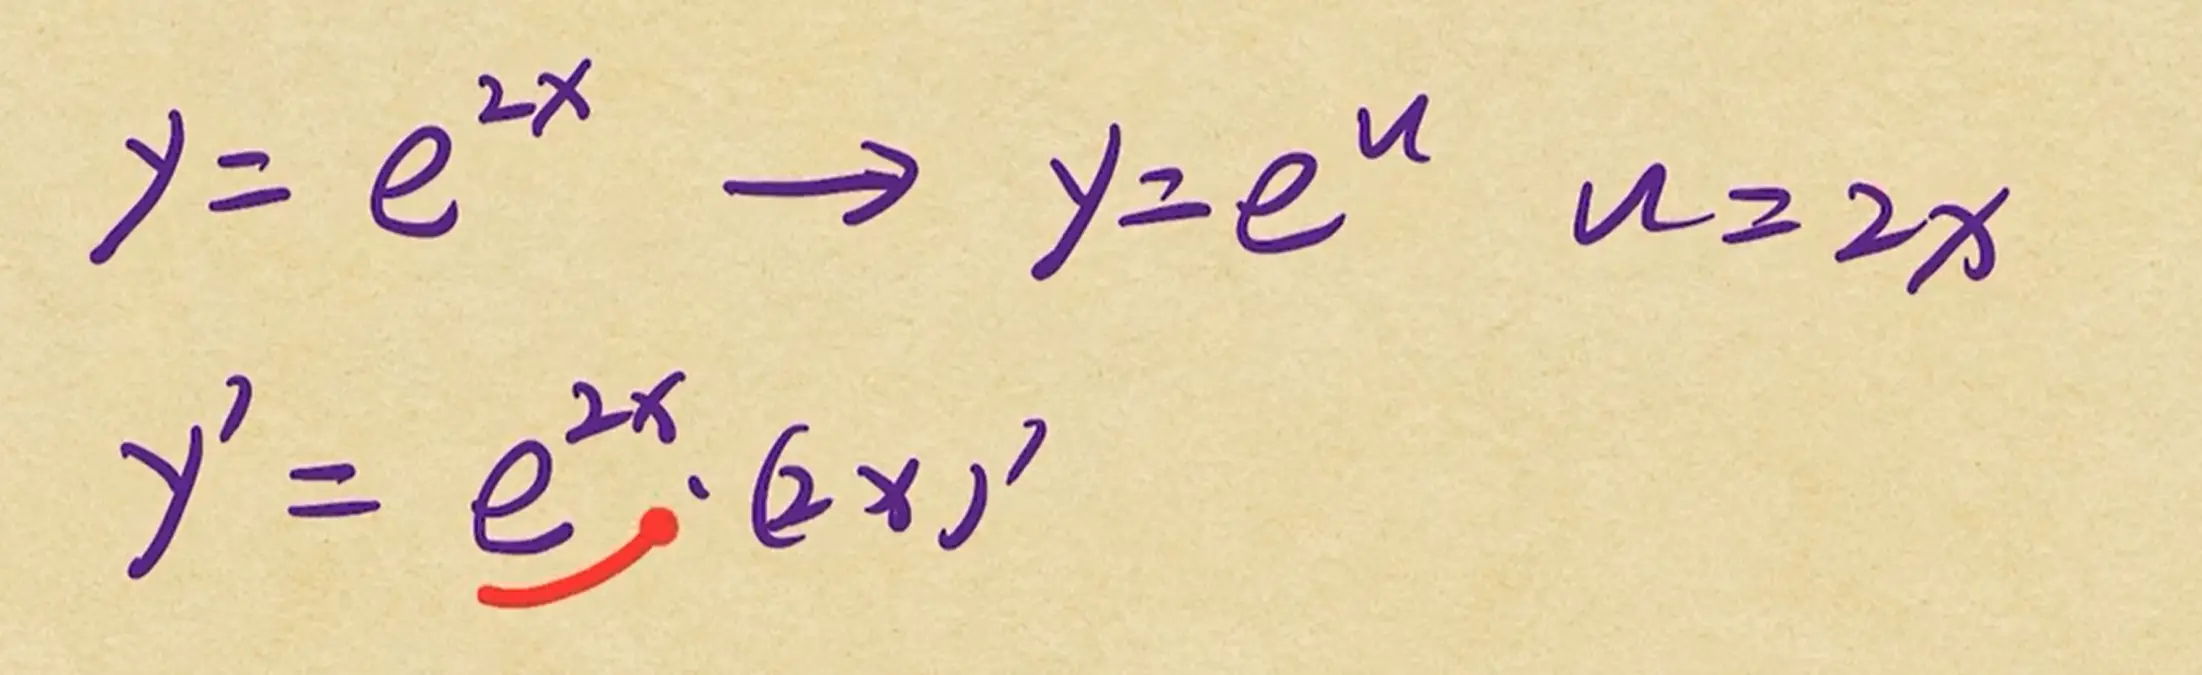 y = e^{2x} → y = e^u  u = 2x
y' = e^{2x} · (2x)'